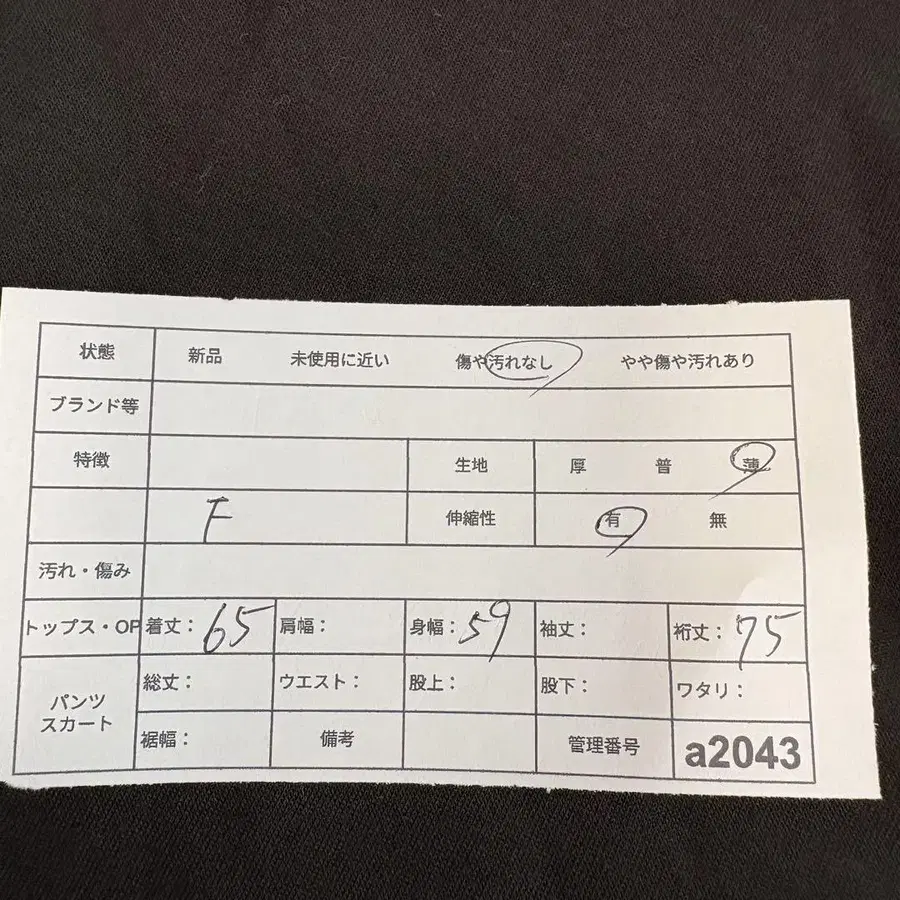 状態 新品 未使用に近い 傷や汚れなし やや傷や汚れあり
ブランド等
特徴 生地 厚 普 薄
F 伸縮性 有 無
汚れ・傷み
トップス・OP 着丈：65 肩幅： 身幅：59 袖丈： 裄丈：75
パンツ
スカート
総丈： ウエスト： 股上： 股下： ワタリ：
裾幅： 備考 管理番号 a2043